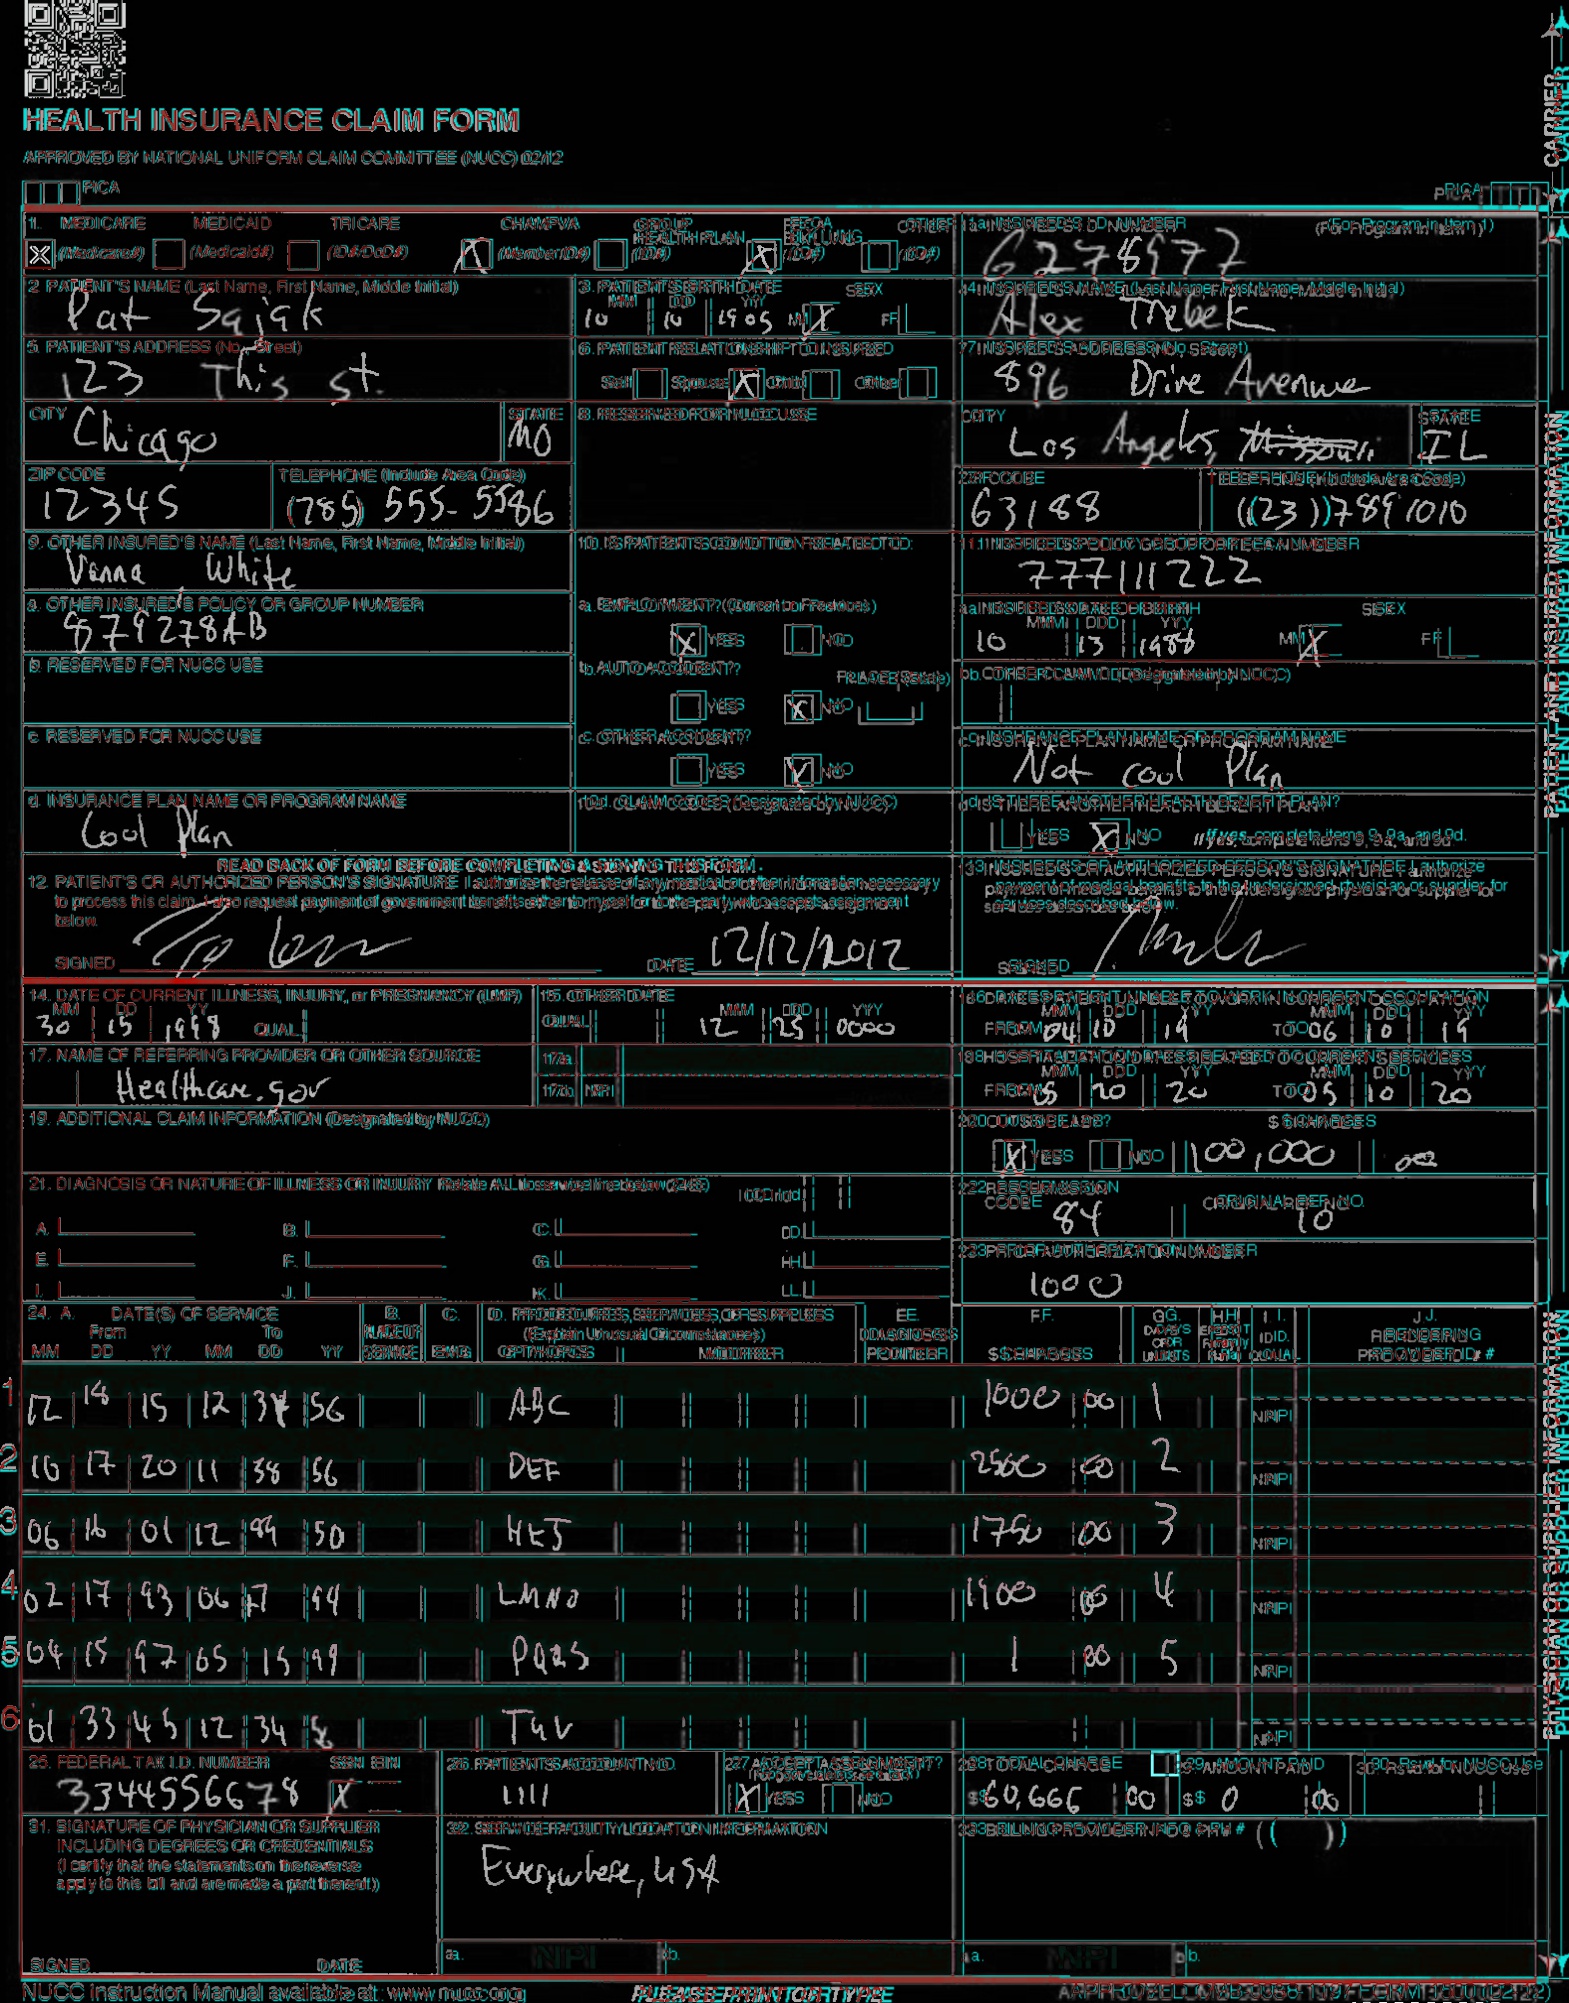 HEALTH INSURANCE CLAIM FORM
APPROVED BY NATIONAL UNIFORM CLAIM COMMITTEE (NUCC) 02/12
PICA PICA
CARRIER
1. MEDICARE MEDICAID TRICARE CHAMPVA GROUP HEALTH PLAN FECA BLK LUNG OTHER
X (Medicare#) (Medicaid#) (ID#/DoD#) X (Member ID#) (ID#) X (ID#) (ID#)
1a. INSURED'S I.D. NUMBER (For Program in Item 1)
6278977
2. PATIENT'S NAME (Last Name, First Name, Middle Initial)
Pat Sajak
3. PATIENT'S BIRTH DATE SEX
MM DD YY
10 10 1905 M X F
4. INSURED'S NAME (Last Name, First Name, Middle Initial)
Alex Trebek
5. PATIENT'S ADDRESS (No., Street)
123 This st.
6. PATIENT RELATIONSHIP TO INSURED
Self Spouse X Child Other
7. INSURED'S ADDRESS (No., Street)
896 Drive Avenue
CITY STATE
Chicago MO
8. RESERVED FOR NUCC USE
CITY STATE
Los Angeles, IL
ZIP CODE TELEPHONE (Include Area Code)
12345 (785) 555-5586
ZIP CODE TELEPHONE (Include Area Code)
63188 (23) 789 1010
9. OTHER INSURED'S NAME (Last Name, First Name, Middle Initial)
Vanna White
10. IS PATIENT'S CONDITION RELATED TO:
11. INSURED'S POLICY GROUP OR FECA NUMBER
777111222
a. OTHER INSURED'S POLICY OR GROUP NUMBER
879278AB
a. EMPLOYMENT? (Current or Previous)
X YES NO
a. INSURED'S DATE OF BIRTH SEX
MM DD YY
10 13 1988 M X F
b. RESERVED FOR NUCC USE
b. AUTO ACCIDENT? PLACE (State)
YES X NO
b. OTHER CLAIM ID (Designated by NUCC)
c. RESERVED FOR NUCC USE
c. OTHER ACCIDENT?
YES X NO
c. INSURANCE PLAN NAME OR PROGRAM NAME
Not cool Plan
d. INSURANCE PLAN NAME OR PROGRAM NAME
Cool Plan
10d. CLAIM CODES (Designated by NUCC)
d. IS THERE ANOTHER HEALTH BENEFIT PLAN?
YES X NO If yes, complete items 9, 9a, and 9d.
READ BACK OF FORM BEFORE COMPLETING & SIGNING THIS FORM.
12. PATIENT'S OR AUTHORIZED PERSON'S SIGNATURE I authorize the release of any medical or other information necessary
to process this claim. I also request payment of government benefits either to myself or to the party who accepts assignment
below.
SIGNED DATE 12/12/2012
13. INSURED'S OR AUTHORIZED PERSON'S SIGNATURE I authorize
payment of medical benefits to the undersigned physician or supplier for
services described below.
SIGNED
PATIENT AND INSURED INFORMATION
14. DATE OF CURRENT ILLNESS, INJURY, or PREGNANCY (LMP)
MM DD YY
30 15 1998 QUAL.
15. OTHER DATE
MM DD YY
QUAL. 12 25 0000
16. DATES PATIENT UNABLE TO WORK IN CURRENT OCCUPATION
MM DD YY MM DD YY
FROM 04 10 19 TO 06 10 19
17. NAME OF REFERRING PROVIDER OR OTHER SOURCE
Healthcare.gov
17a.
17b. NPI
18. HOSPITALIZATION DATES RELATED TO CURRENT SERVICES
MM DD YY MM DD YY
FROM 05 20 20 TO 05 10 20
19. ADDITIONAL CLAIM INFORMATION (Designated by NUCC)
20. OUTSIDE LAB? $ CHARGES
X YES NO 100,000 00
21. DIAGNOSIS OR NATURE OF ILLNESS OR INJURY Relate A-L to service line below (24E) ICD Ind.
A. B. C. D.
E. F. G. H.
I. J. K. L.
22. RESUBMISSION CODE ORIGINAL REF. NO.
84 10
23. PRIOR AUTHORIZATION NUMBER
1000
24. A. DATE(S) OF SERVICE B. C. D. PROCEDURES, SERVICES, OR SUPPLIES E. F. G. H. I. J.
From To PLACE OF SERVICE (Explain Unusual Circumstances) DIAGNOSIS POINTER DAYS OR UNITS EPSDT Family Plan ID. QUAL. RENDERING PROVIDER ID. #
MM DD YY MM DD YY EMG CPT/HCPCS MODIFIER $ CHARGES
1 12 18 15 12 34 56 ABC 1000 00 1 NPI
2 10 17 20 11 38 56 DEF 2500 00 2 NPI
3 06 16 01 12 89 50 HEJ 1750 00 3 NPI
4 02 17 93 06 17 94 LMNO 1900 00 4 NPI
5 04 15 97 05 15 99 PQRS 1 00 5 NPI
6 01 33 45 12 34 TUV NPI
25. FEDERAL TAX I.D. NUMBER SSN EIN
3344556678 X
26. PATIENT'S ACCOUNT NO.
1111
27. ACCEPT ASSIGNMENT?
X YES NO
28. TOTAL CHARGE
$ 60,666 00
29. AMOUNT PAID
$ 0 00
30. Rsvd for NUCC Use
31. SIGNATURE OF PHYSICIAN OR SUPPLIER
INCLUDING DEGREES OR CREDENTIALS
(I certify that the statements on the reverse
apply to this bill and are made a part thereof.)
SIGNED DATE
32. SERVICE FACILITY LOCATION INFORMATION
Everywhere, USA
a. NPI b.
33. BILLING PROVIDER INFO & PH # ( )
a. NPI b.
PHYSICIAN OR SUPPLIER INFORMATION
NUCC Instruction Manual available at: www.nucc.org PLEASE PRINT OR TYPE APPROVED OMB-0938-1197 FORM 1500 (02-12)